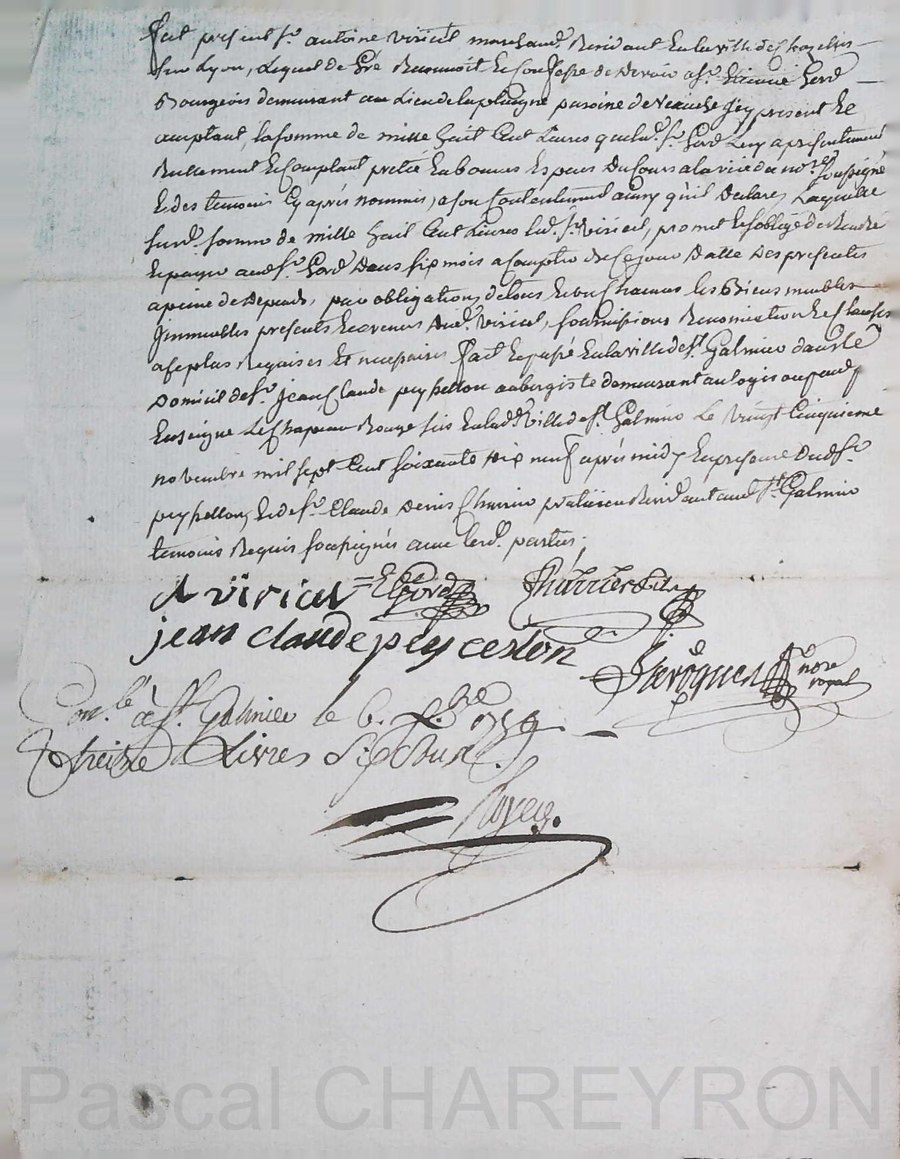 fut present sr. antoine viricel marchand. Residant En la ville de Chazelles
sur Lyon, Lequel de Gré Reconnoit Et Confesse de Devoir a sr. Etienne Gord
Bourgeois demeurant au Lieu de la plaigne paroisse de Veauche Icy present Et
acceptant, la somme de mille huit Cent Livres que led. sr. Gord Luy a presentement
Reellement Et Comptant pretée En bonnes Especes Du Cours a la vüe du nore. soussigné
Et des temoins Cy après nommés, a son Contentement ainsy qu'il Declare, Laquelle
susd. somme de mille huit Cent Livres led. sr. viricel, promet Et s'oblige de Rendre
Et payer aud. sr. Gord Dans six mois a Compter de Ce jour Datte Des presentes
a peine de Depends, par obligation de tous Et Chacuns les Biens meubles
Immeubles presents Et avenir dud. viricel, soumissions Renonciation Et Clauses
a Ce plus Requises Et necessaires fait Et passé En la ville de st. Galmier dans le
Domicil de sr. Jean Claude peysselton aubergiste demeurant au logis ou pend p
Enseigne Le Chapeau Rouge sis En lad. Ville de st. Galmier Le Vingt Cinquieme
novembre mil sept Cent soixante dix neuf après midy En presence Dud. sr.
peysselton, Et de sr. Claude Denis Charrier praticien Residant aud. st. Galmier
temoins Requis soussignés avec lesd. parties.
A viricel = E Gord Charrier
jean claude peyceston
nore
royal
Con.lé à St. Galmier le 6. Xbre 1779
treize Livres Six Sous